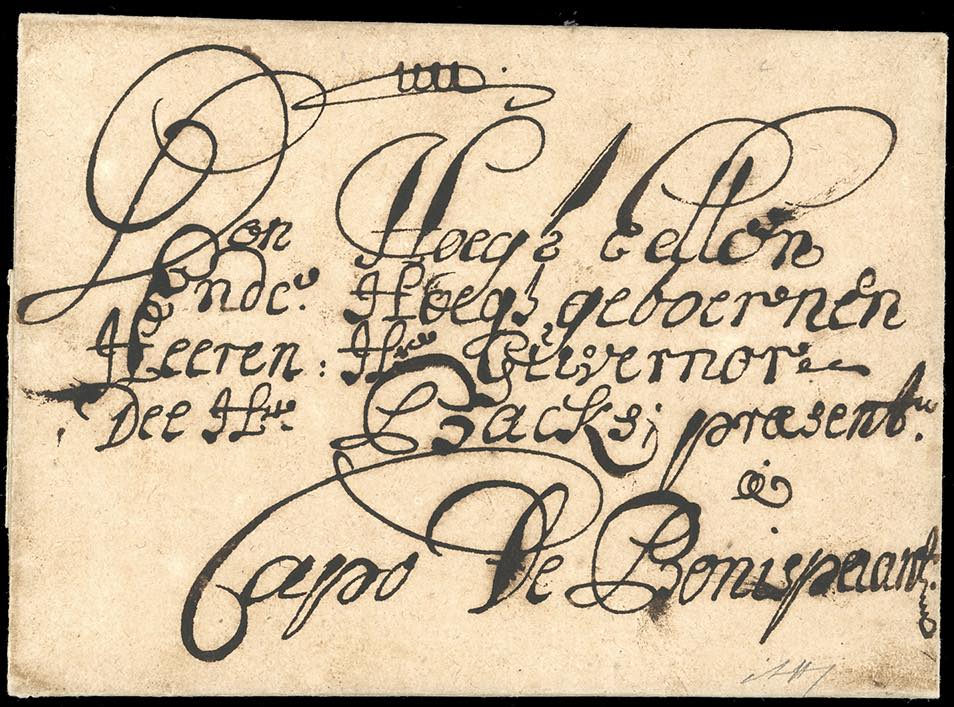 Don Hoegl: Edlen
ende. Hoegl. geboerenen
Heeren: Hre Geuvernor
Dee Hre. Backs; præsent.
â
Capo De Bonispeirant.